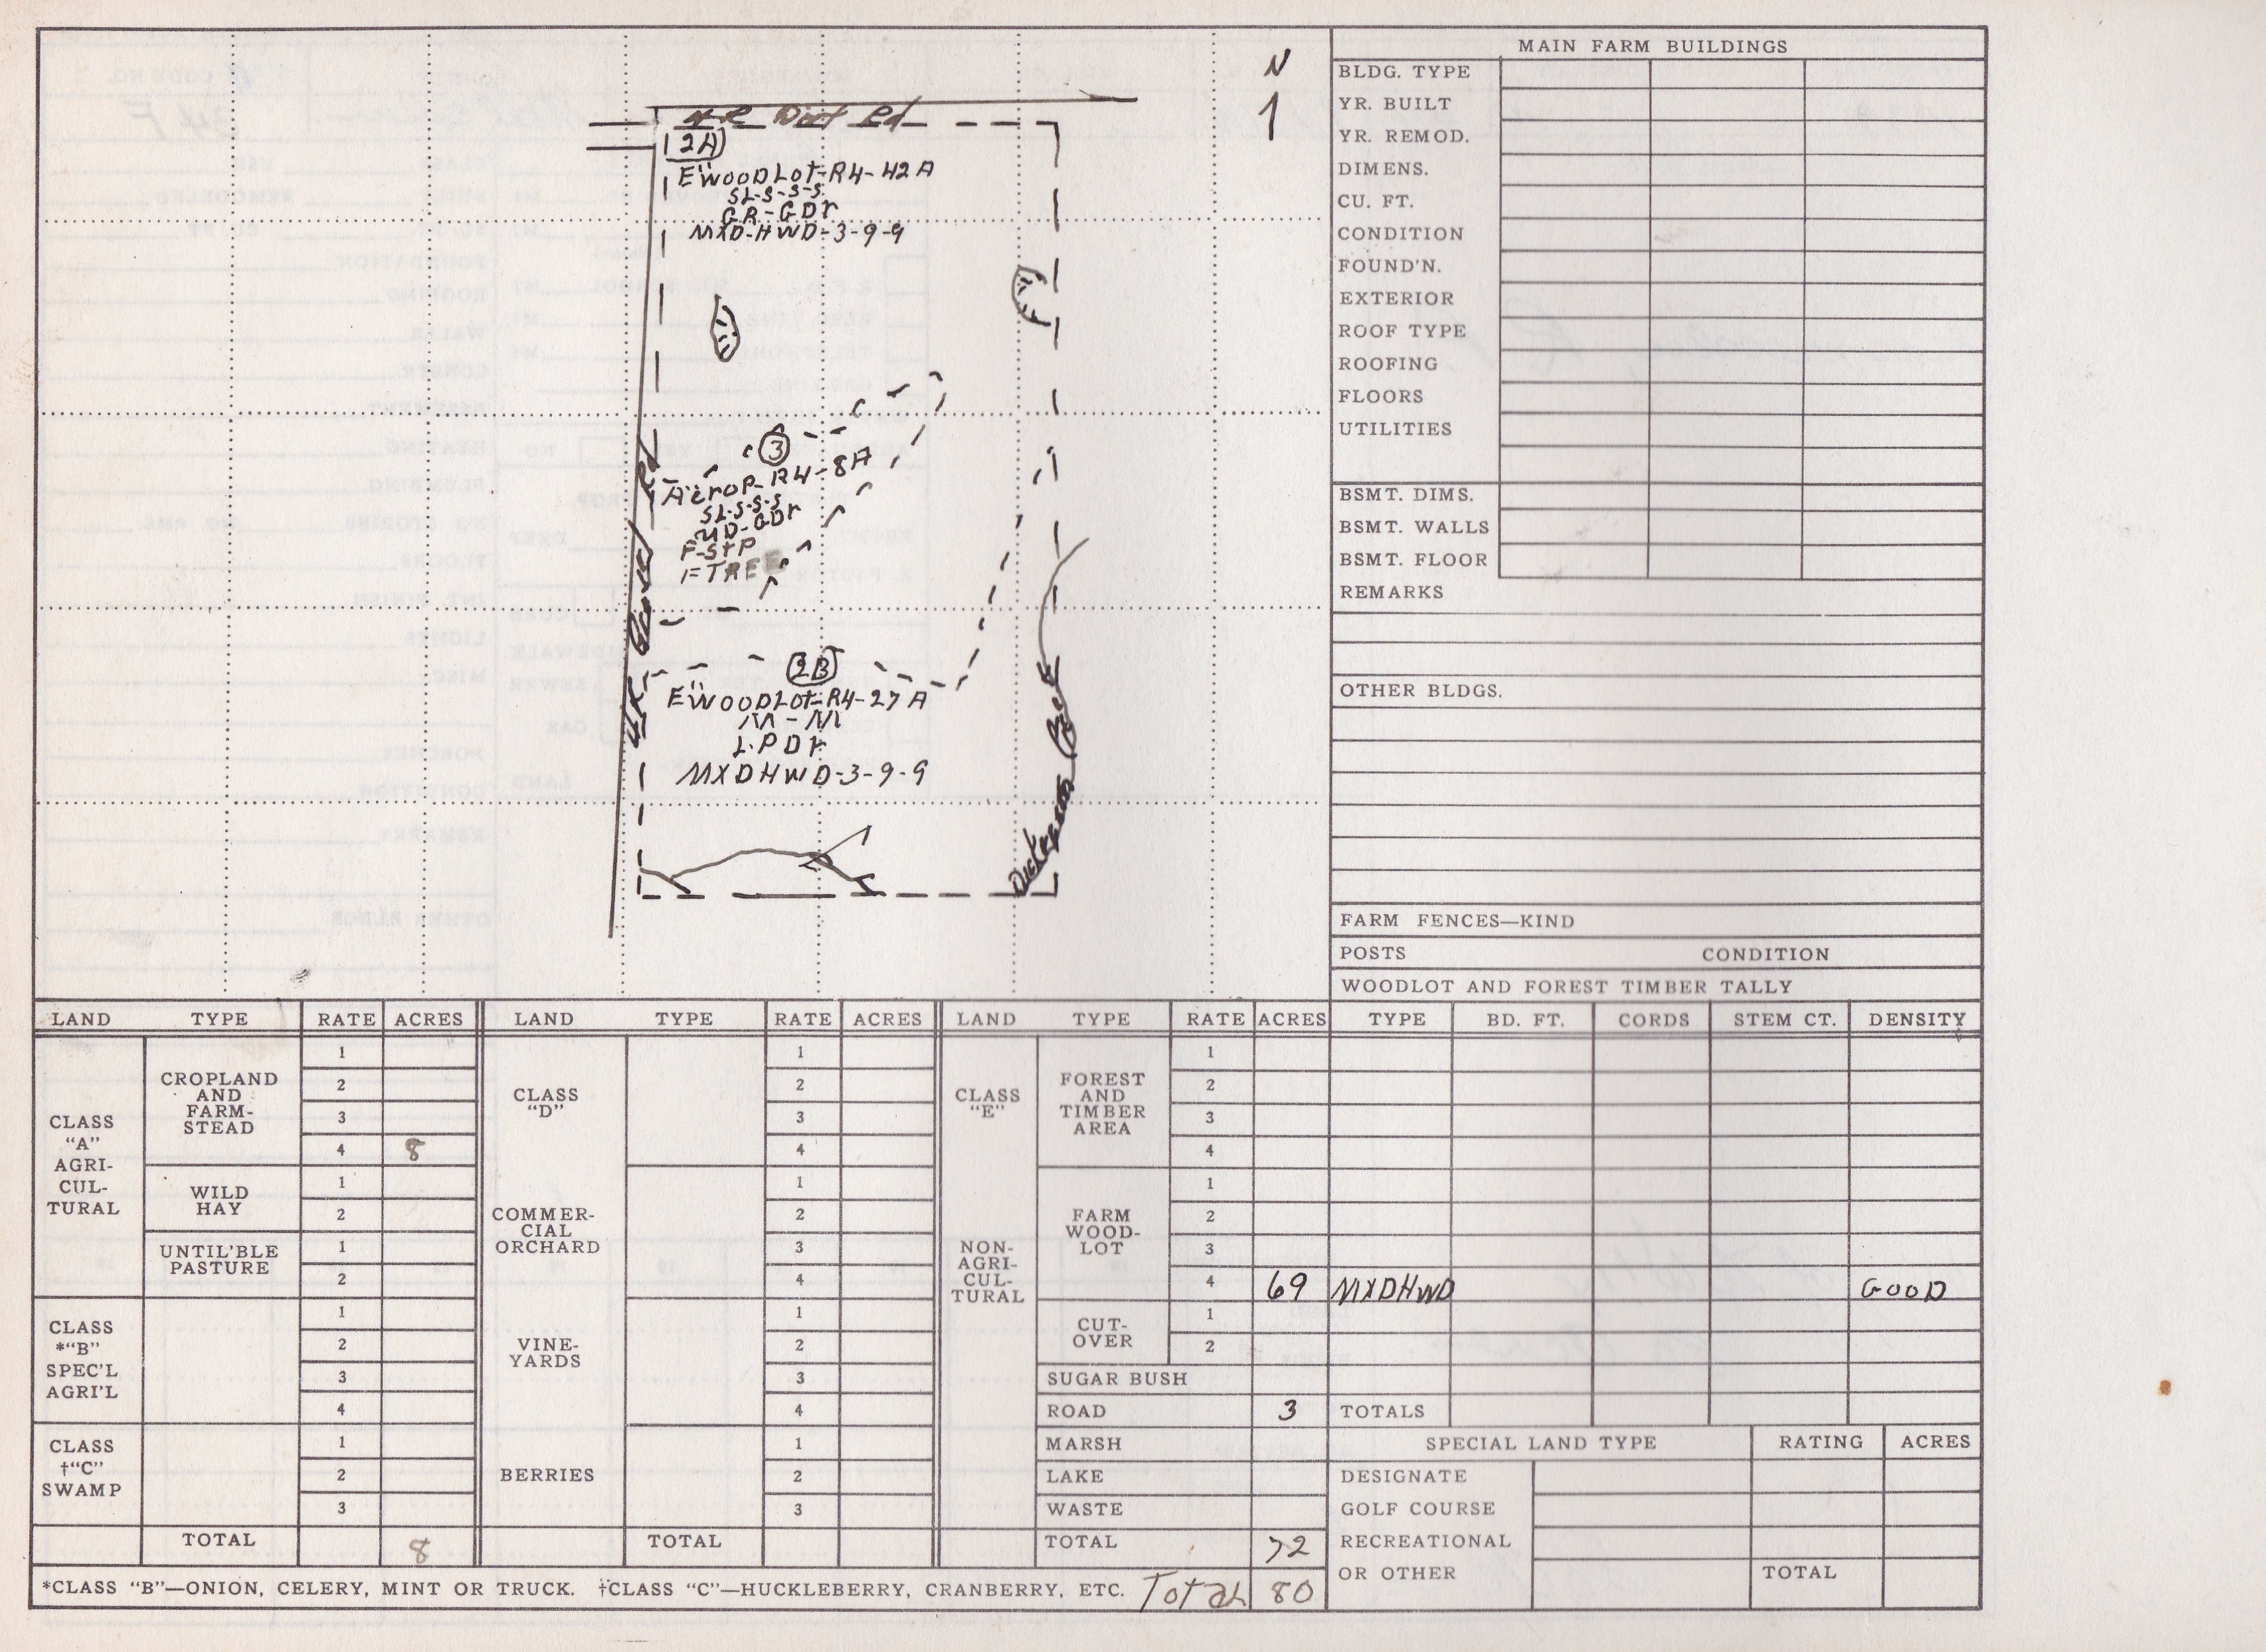 N
4R Dirt Rd
2A
E"WOODLOT-R4-42A
SL-S-S-S
GR-GDr
MXD-HWD-3-9-9
3
A"CROP-R4-8A
SL-S-S-S
UD-GDr
F-StP
F-TREE
2B
E"WOODLOT-R4-27A
M-M
L-PDr
MXDHWD-3-9-9
Gravel Rd
Dickerson Creek
MAIN FARM BUILDINGS
BLDG. TYPE
YR. BUILT
YR. REMOD.
DIMENS.
CU. FT.
CONDITION
FOUND'N.
EXTERIOR
ROOF TYPE
ROOFING
FLOORS
UTILITIES
BSMT. DIMS.
BSMT. WALLS
BSMT. FLOOR
REMARKS
OTHER BLDGS.
FARM FENCES—KIND
POSTS CONDITION
WOODLOT AND FOREST TIMBER TALLY
LAND TYPE RATE ACRES LAND TYPE RATE ACRES LAND TYPE RATE ACRES TYPE BD. FT. CORDS STEM CT. DENSITY
CLASS
"A"
AGRI-
CUL-
TURAL
CROPLAND
AND
FARM-
STEAD
1
2
3
4 8
WILD
HAY
1
2
UNTIL'BLE
PASTURE
1
2
CLASS
*"B"
SPEC'L
AGRI'L
1
2
3
4
CLASS
†"C"
SWAMP
1
2
3
TOTAL 8
CLASS
"D"
1
2
3
4
COMMER-
CIAL
ORCHARD
1
2
3
4
VINE-
YARDS
1
2
3
4
BERRIES
1
2
3
TOTAL
CLASS
"E"
NON-
AGRI-
CUL-
TURAL
FOREST
AND
TIMBER
AREA
1
2
3
4
FARM
WOOD-
LOT
1
2
3
4 69 MXDHWD GOOD
CUT-
OVER
1
2
SUGAR BUSH
ROAD 3 TOTALS
MARSH
LAKE
WASTE
TOTAL 72
SPECIAL LAND TYPE RATING ACRES
DESIGNATE
GOLF COURSE
RECREATIONAL
OR OTHER TOTAL
*CLASS "B"—ONION, CELERY, MINT OR TRUCK. †CLASS "C"—HUCKLEBERRY, CRANBERRY, ETC. Total 80